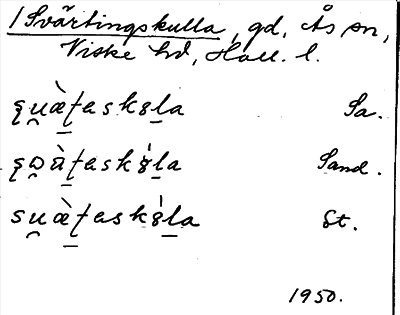 1 Svärtingskulla, gd, Ås sn,
Viske hd, Hall. l.
ṣu̯æ̀ṭask8l̠a Sa.
ṣɷ̯ä̀ṭask8́l̠a Sand.
su̯æ̀ṭask8́l̠a St.
1950.